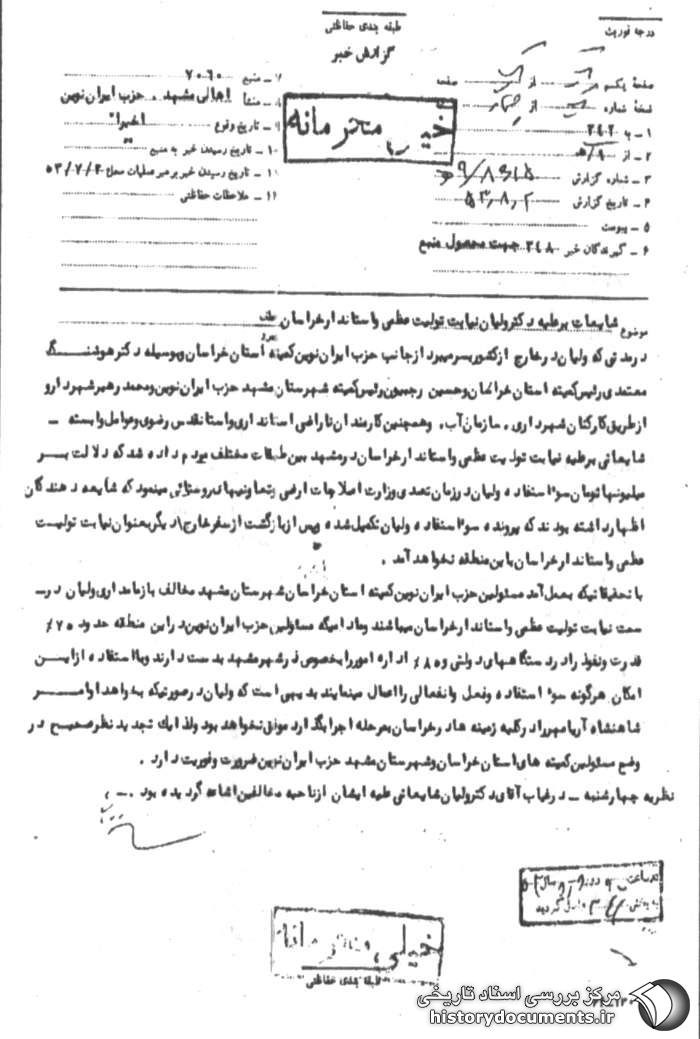 درجه فوریت
طبقه بندی حفاظتی
گزارش خبر
صفحهٔ یکم از صفحه
نسخهٔ شماره از
۱ ـ به ۳۴۲
۲ ـ از ۹/ھ
۳ ـ شماره گزارش
۴ ـ تاریخ گزارش ۵۳,۸,۲
۵ ـ پیوست
۶ ـ گیرندگان خبر ۳۴۸ جهت محصول منبع
خیلی محرمانه
۷ ـ منبع ۷۰۶۰
۸ ـ منشأ اهالی مشهد . حزب ایران نوین
۹ ـ تاریخ وقوع اخیرا"
۱۰ ـ تاریخ رسیدن خبر به منبع
۱۰ ـ تاریخ رسیدن خبر برهبر عملیات محل
۱۱ ـ ملاحظات حفاظتی
موضوع شایعات برعلیه دکترولیان نیابت تولیت عظمی واستاندارخراسان
درمدتی که ولیان درخارج ازکشوربسرمیبرد ازجانب حزب ایران نوین کمیته استان خراسان وبوسیله دکترهوشنگ
معتمدی رئیس کمیته استان خراسان وحسین رجبیون رئیس کمیته شهرستان مشهد حزب ایران نوین ومحمد رهبرشهردارو
ازطریق کارکنان شهرداری . سازمان آب . وهمچنین کارمندان ناراضی استانداری واستانقدس رضوی وعوامل وابسته ـ
شایعاتی برعلیه نیابت تولیت عظمی واستاندارخراسان درمشهد بین طبقات مختلف مردم داده شد که دلالت بـر
میلیونها تومان سوء استفاده ولیان درزمان تصدی وزارت اصلاحات ارضی وتعاونیهای روستائی مینمود که شایعه دهندگان
اظهارداشته بودند که پرونده سوء استفاده ولیان تکمیل شده وپس ازبازگشت ازسفرخارج دیگربعنوان نیابت تولیت
عظمی واستاندارخراسان باین منطقه نخواهد آمد .
با تحقیقاتیکه بعمل آمد مسئولین حزب ایران نوین کمیته استان خراسان شهرستان مشهد مخالف بازمامداری ولیان درـ
سمت نیابت تولیت عظمی واستاندارخراسان میباشند ومادامیکه مسئولین حزب ایران نوین دراین منطقه حدود ۷۵٪
قدرت ونفوذ رادردستگاههای دولتی و ۸۵٪ اداره اموررابخصوص درشهرمشهد بدست دارند وبااستفاده ازایـن
امکان هرگونه سوء استفاده وفعل وانفعالی رااعمال مینمایند بدیهی است که ولیان درصورتیکه بخواهد اوامـر
شاهنشاه آریامهررادرکلیه زمینه هادرخراسان بمرحله اجرابگذارد موفق نخواهد بود ولذا یک تجدید نظرصحیح در
وضع مسئولین کمیته های استان خراسان وشهرستان مشهد حزب ایران نوین ضرورت وفوریت دارد .
نظریه چهارشنبه ـ درغیاب آقای دکترولیان شایعاتی علیه ایشان ازناحیه مخالفین اشاعه گردیده بود .
خیلی محرمانه
طبقه بندی حفاظتی
مرکز بررسی اسناد تاریخی
historydocuments.ir